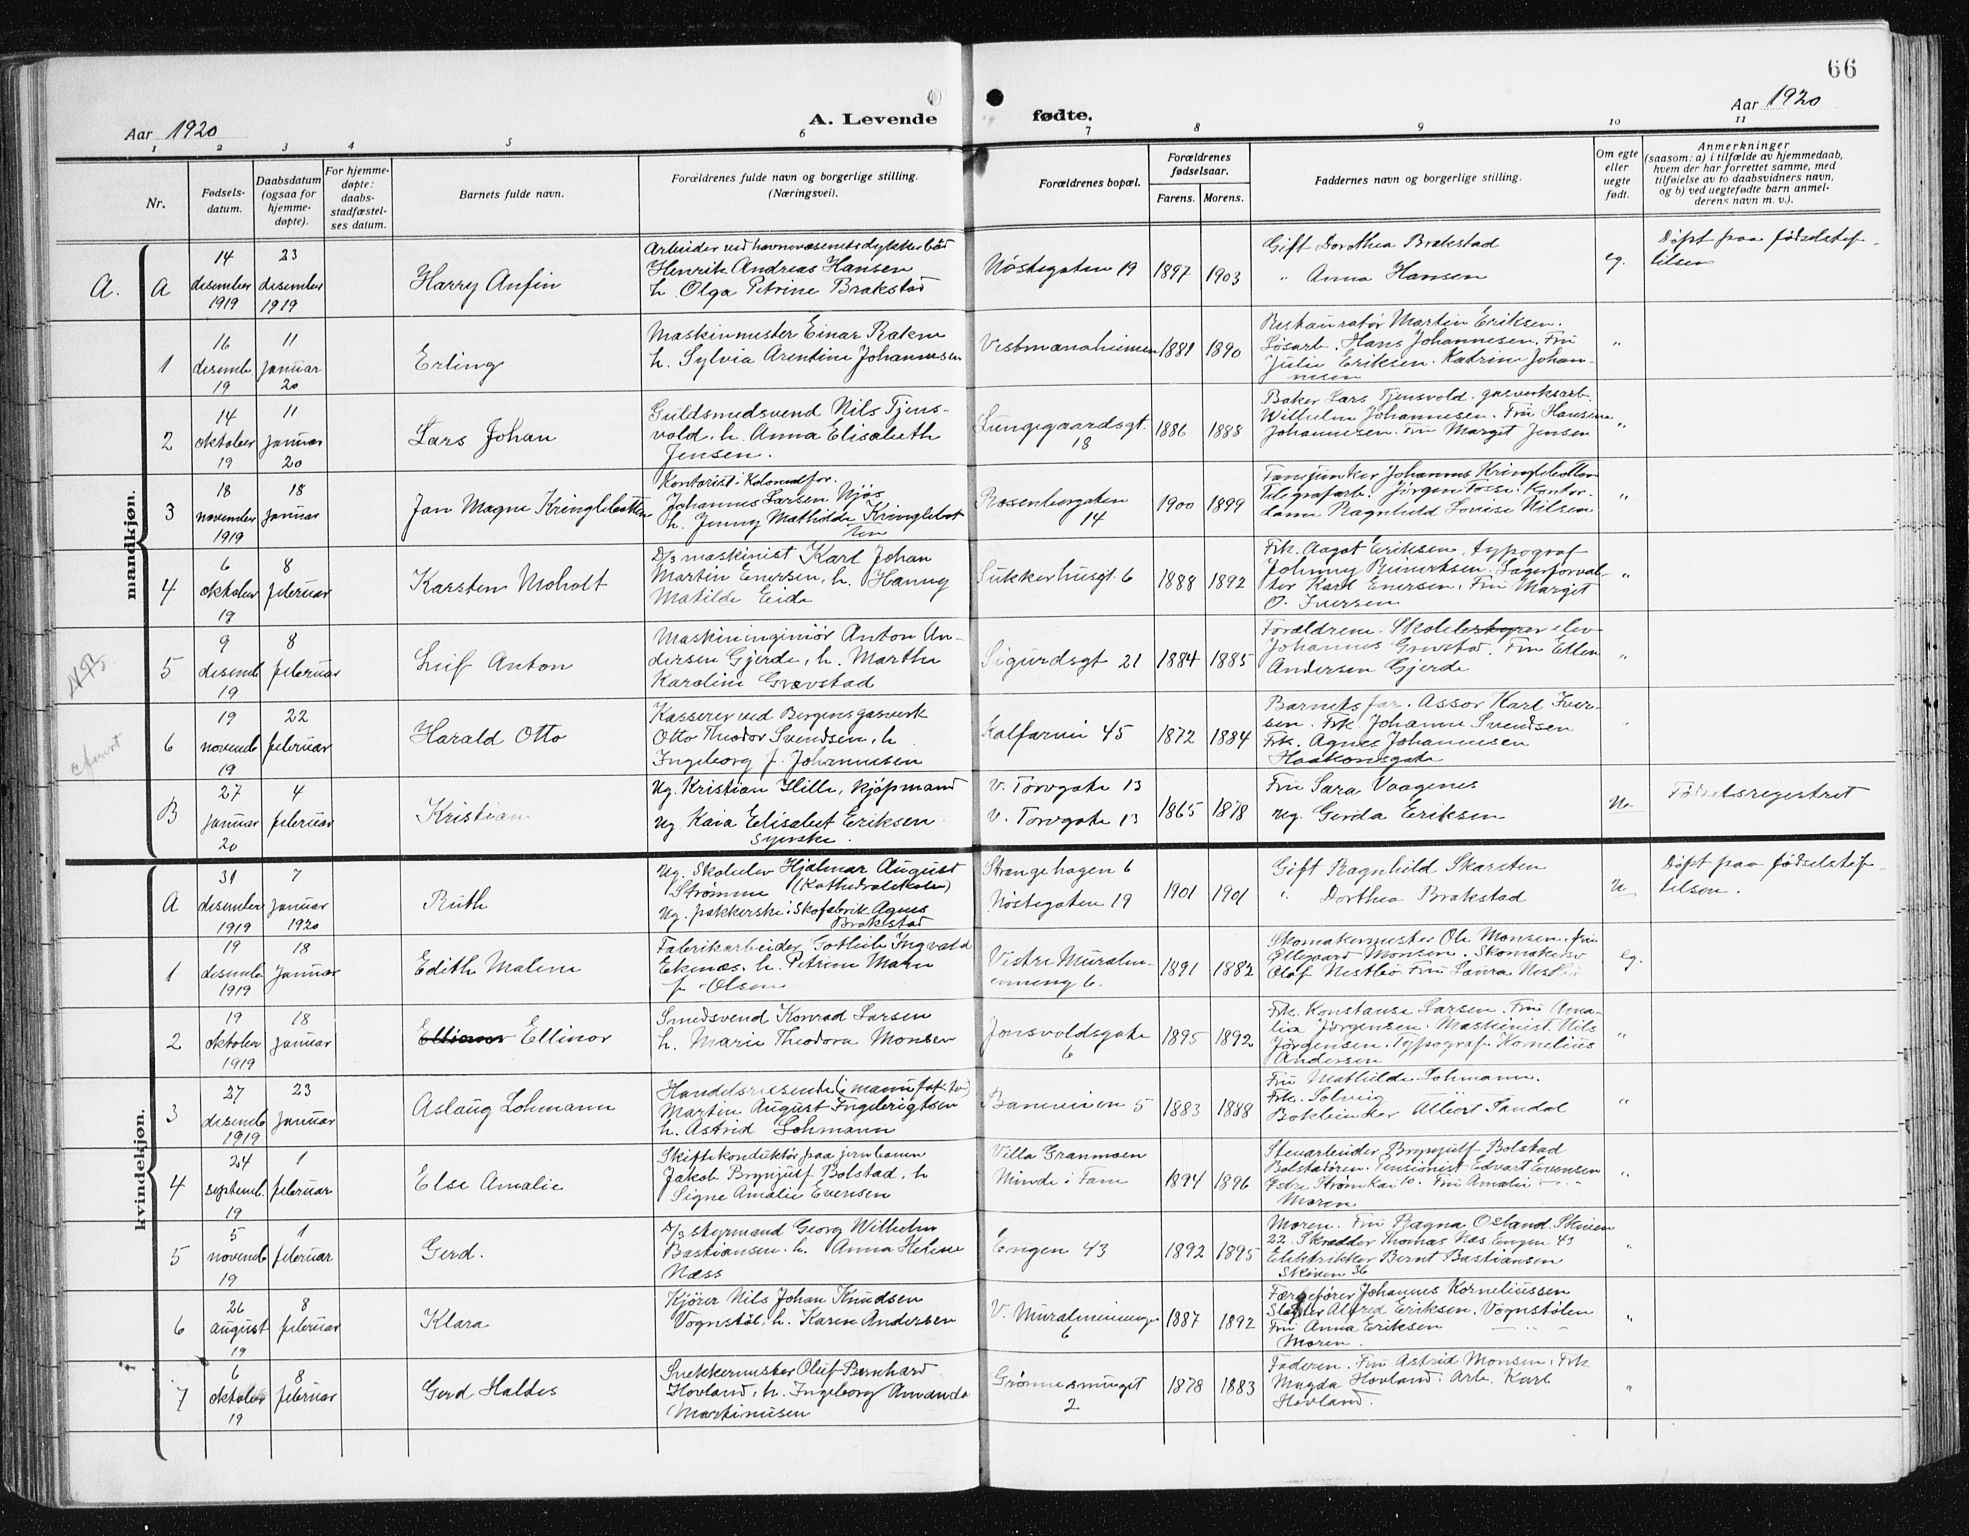 66
Aar 1920
A. Levende fødte.
Aar 1920
1 2 3 4 5 6 7 8 9 10 11
Nr.
Fødsels-
datum.
Daabsdatum
(ogsaa for
hjemme-
døpte).
For hjemme-
døpte:
daabs-
stadfæstel-
ses datum.
Barnets fulde navn.
Forældrenes fulde navn og borgerlige stilling.
(Næringsvei).
Forældrenes bopæl.
Forældrenes
fødselsaar.
Farens. Morens.
Faddernes navn og borgerlige stilling.
Om egte
eller
uegte
født.
Anmerkninger
(saasom: a) i tilfælde av hjemmedaab,
hvem der har forrettet samme, med
tilføielse av to daabsvidners navn,
og b) ved uegtefødte barn anmel-
derens navn m. v.).
mandkjøn.
A. A
14
desember
1919
23
desember
1919
Harry Anfin
Arbeider ved havnevæsenets dykkerbåd
Henrik Andreas Hansen
h. Olga Petrine Brakstad
Nøstegaten 19
1897 1903
Gift Dorothea Brakstad
" Anna Hansen
eg.
Døpt paa fødselstif-
telsen
1
16
desemb
19
11
januar
20
Erling
Maskinmester Einar Bakene
h. Sylvia Arentine Johannesen
Vestmannaheimen
1881 1890
Restauratør Martin Eriksen.
Løsarb. Hans Johannesen. Fru
Julie Eriksen. Katrine Johan-
nesen
"
2
14
oktober
19
11
januar
20
Lars Johan
Guldsmedsvend Nils Tjens-
vold. h. Anna Elisabeth
Jensen.
Lungegaardsgt.
18
1886 1888
Baker Lars Tjensvold. gasverksarb.
Wilhelm Johannesen. Fru Hansine
Johannesen. Fru Marget Jensen
"
3
18
november
1919
18
januar
Jan Magne Kringlebotten
Kontorist i Kolonialfor.
Johannes Larsen Njøs
h. Jenny Mathilde Kringlebot
ten
Rosenbergaten
14
1900 1899
Johannes Kringlebotten
Telegrafarb. Jørgen Fosse. Kontor-
dame Ragnhild Louise Nilsen
"
4
6
oktober
19
8
februar
Karsten Moholt
D/s maskinist Karl Johan
Martin Enersen, h. Hanny
Matilde Eide
Sukkerhusgt. 6
1888 1892
Frk. Aagot Eriksen, typograf
Johnny Reinertsen. Lagerforval-
ter Karl Enersen, Fru Marget
O. Iversen
"
NB.
5
9
desemb
19
8
februar
Leif Anton
Maskiningeniør Anton An-
dersen Gjerde, h. Martha
Karoline Gravstad
Sigurdsgt 21
1884 1885
Forældrene. Skole elev
Johannes Gravstad. Fru Ellen
Andersen Gjerde
"
6
19
novemb
19
22
februar
Harald Otto
Kasserer ved Bergens gasverk
Otto Theodor Svendsen, h
Ingeborg f. Johannesen
Kalfarvei 45
1872 1884
Barnets far. Assor Karl Iver-
sen. Frk. Johanne Svendsen
Frk. Agnes Johannesen
Haakonsgate
"
B
27
januar
20
4
februar
Kristian
Ug. Kristian Hille, kjøpmand
Ug Kaia Elisabet Eriksen
syerske.
V. Torvgate 13
V. Torvgate 13
1865 1878
Fru Sara Vaagenes
Ug. Gerda Eriksen
Ue
Fødselsregistret
kvindekjøn.
A
31
desember
1919
7
januar
1920
Ruth
Ug. Skoleelev Hjalmar August
Strømme (Kathedralskolen)
Ug. pakkerske i Skofabrik Agnes
Brakstad
Strangehagen 6
Nøstegaten 19
1901 1901
Gift Ragnhild Skarsten
" Dorthea Brakstad
U
Døpt paa fødselstif-
telsen.
1
19
desemb
1919
18
januar
Edith Malene
Fabrikarbeider Gotlieb Ingvald
Ekenæs. h. Petrine Marn
f. Olsen
Vestre Muralm-
enning 6.
1891 1882
Skomakermester Ole Monsen, fru
Ellegaard Monsen. Skomakersv
Olaf Nestbø. Fru Laura Nestbø
eg.
2
19
oktober
1919
18
januar
Ellinor
Smedsvend Konrad Larsen
h. Marie Theodora Monsen
Jonsvoldsgate
6
1895 1892
Frk. Konstanse Larsen. Fru Ama-
lia Jørgensen. Maskinist Nils
Jørgensen. Typograf Kornelius
Andersen
"
3
27
desemb
1919
23
januar
Aslaug Lohmann
Handelsreisende (i manufaktur)
Martin August Ingebrigtsen
h. Astrid Lohmann
Baneveien 5
1883 1888
Fru Mathilde Lohmann.
Frk. Solveig
Bokbinder Albert Sandal
"
4
24
septemb.
19
1
februar
Else Amalie
Skiftekonduktør paa jernbanen
Jakob Brynjulf Bolstad. h
Signe Amalie Evensen
Villa Granmoen
Minde i Fane
1894 1896
Stenarbeider Brynjulf Bolstad
Bolstadøren. Pensionist Edvart Evensen
Gstre Strømkai 10. Fru Amalie — " -
Moren
"
5
5
novemb
19
1
februar
Gerd.
D/s styrmand Georg Wilhelm
Bastiansen. h. Anna Helene
Næss
Engen 43
1892 1895
Moren. Fru Ragna Osland. Skiven
22. Skrædder Thomas Næs. Engen 43
Elektrikker Bernt Bastiansen
Skiven 36
"
6
26
august
19
8
februar
Klara
Kjører Nils Johan Knudsen
Vognstøl, h. Karen Andersen
V. Muralmenning
6
1887 1892
Færgefører Johannes Korneliussen
Slagter Alfred Eriksen. Vognstølen
Fru Anna Eriksen — " -
Moren.
"
7
6
oktober
19
8
februar
Gerd Haldis
Snekkermester Oluf Bernhard
Hovland, h. Ingeborg Amanda
Martinusen
Grønnesmuget
2
1878 1883
Faderen. Fru Astrid Monsen, Frk
Magda Hovland. Arb. Karl
Hovland.
"